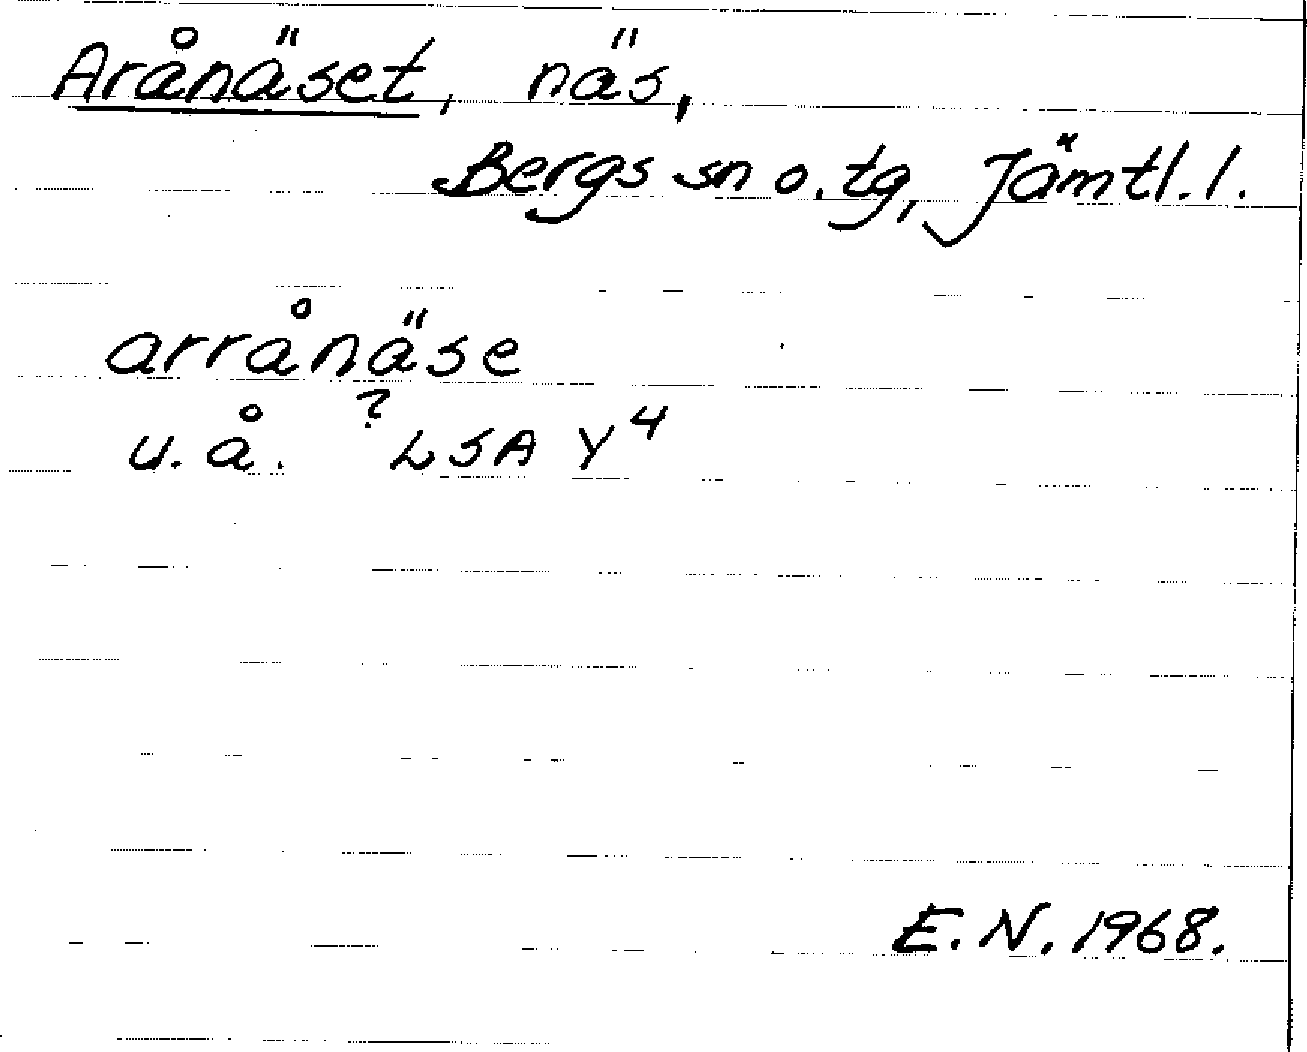 Arånäset, näs,
Bergs sn o. tg, Jämtl. l.
arrånäse
u. å. ? LSA Y4
E. N. 1968.